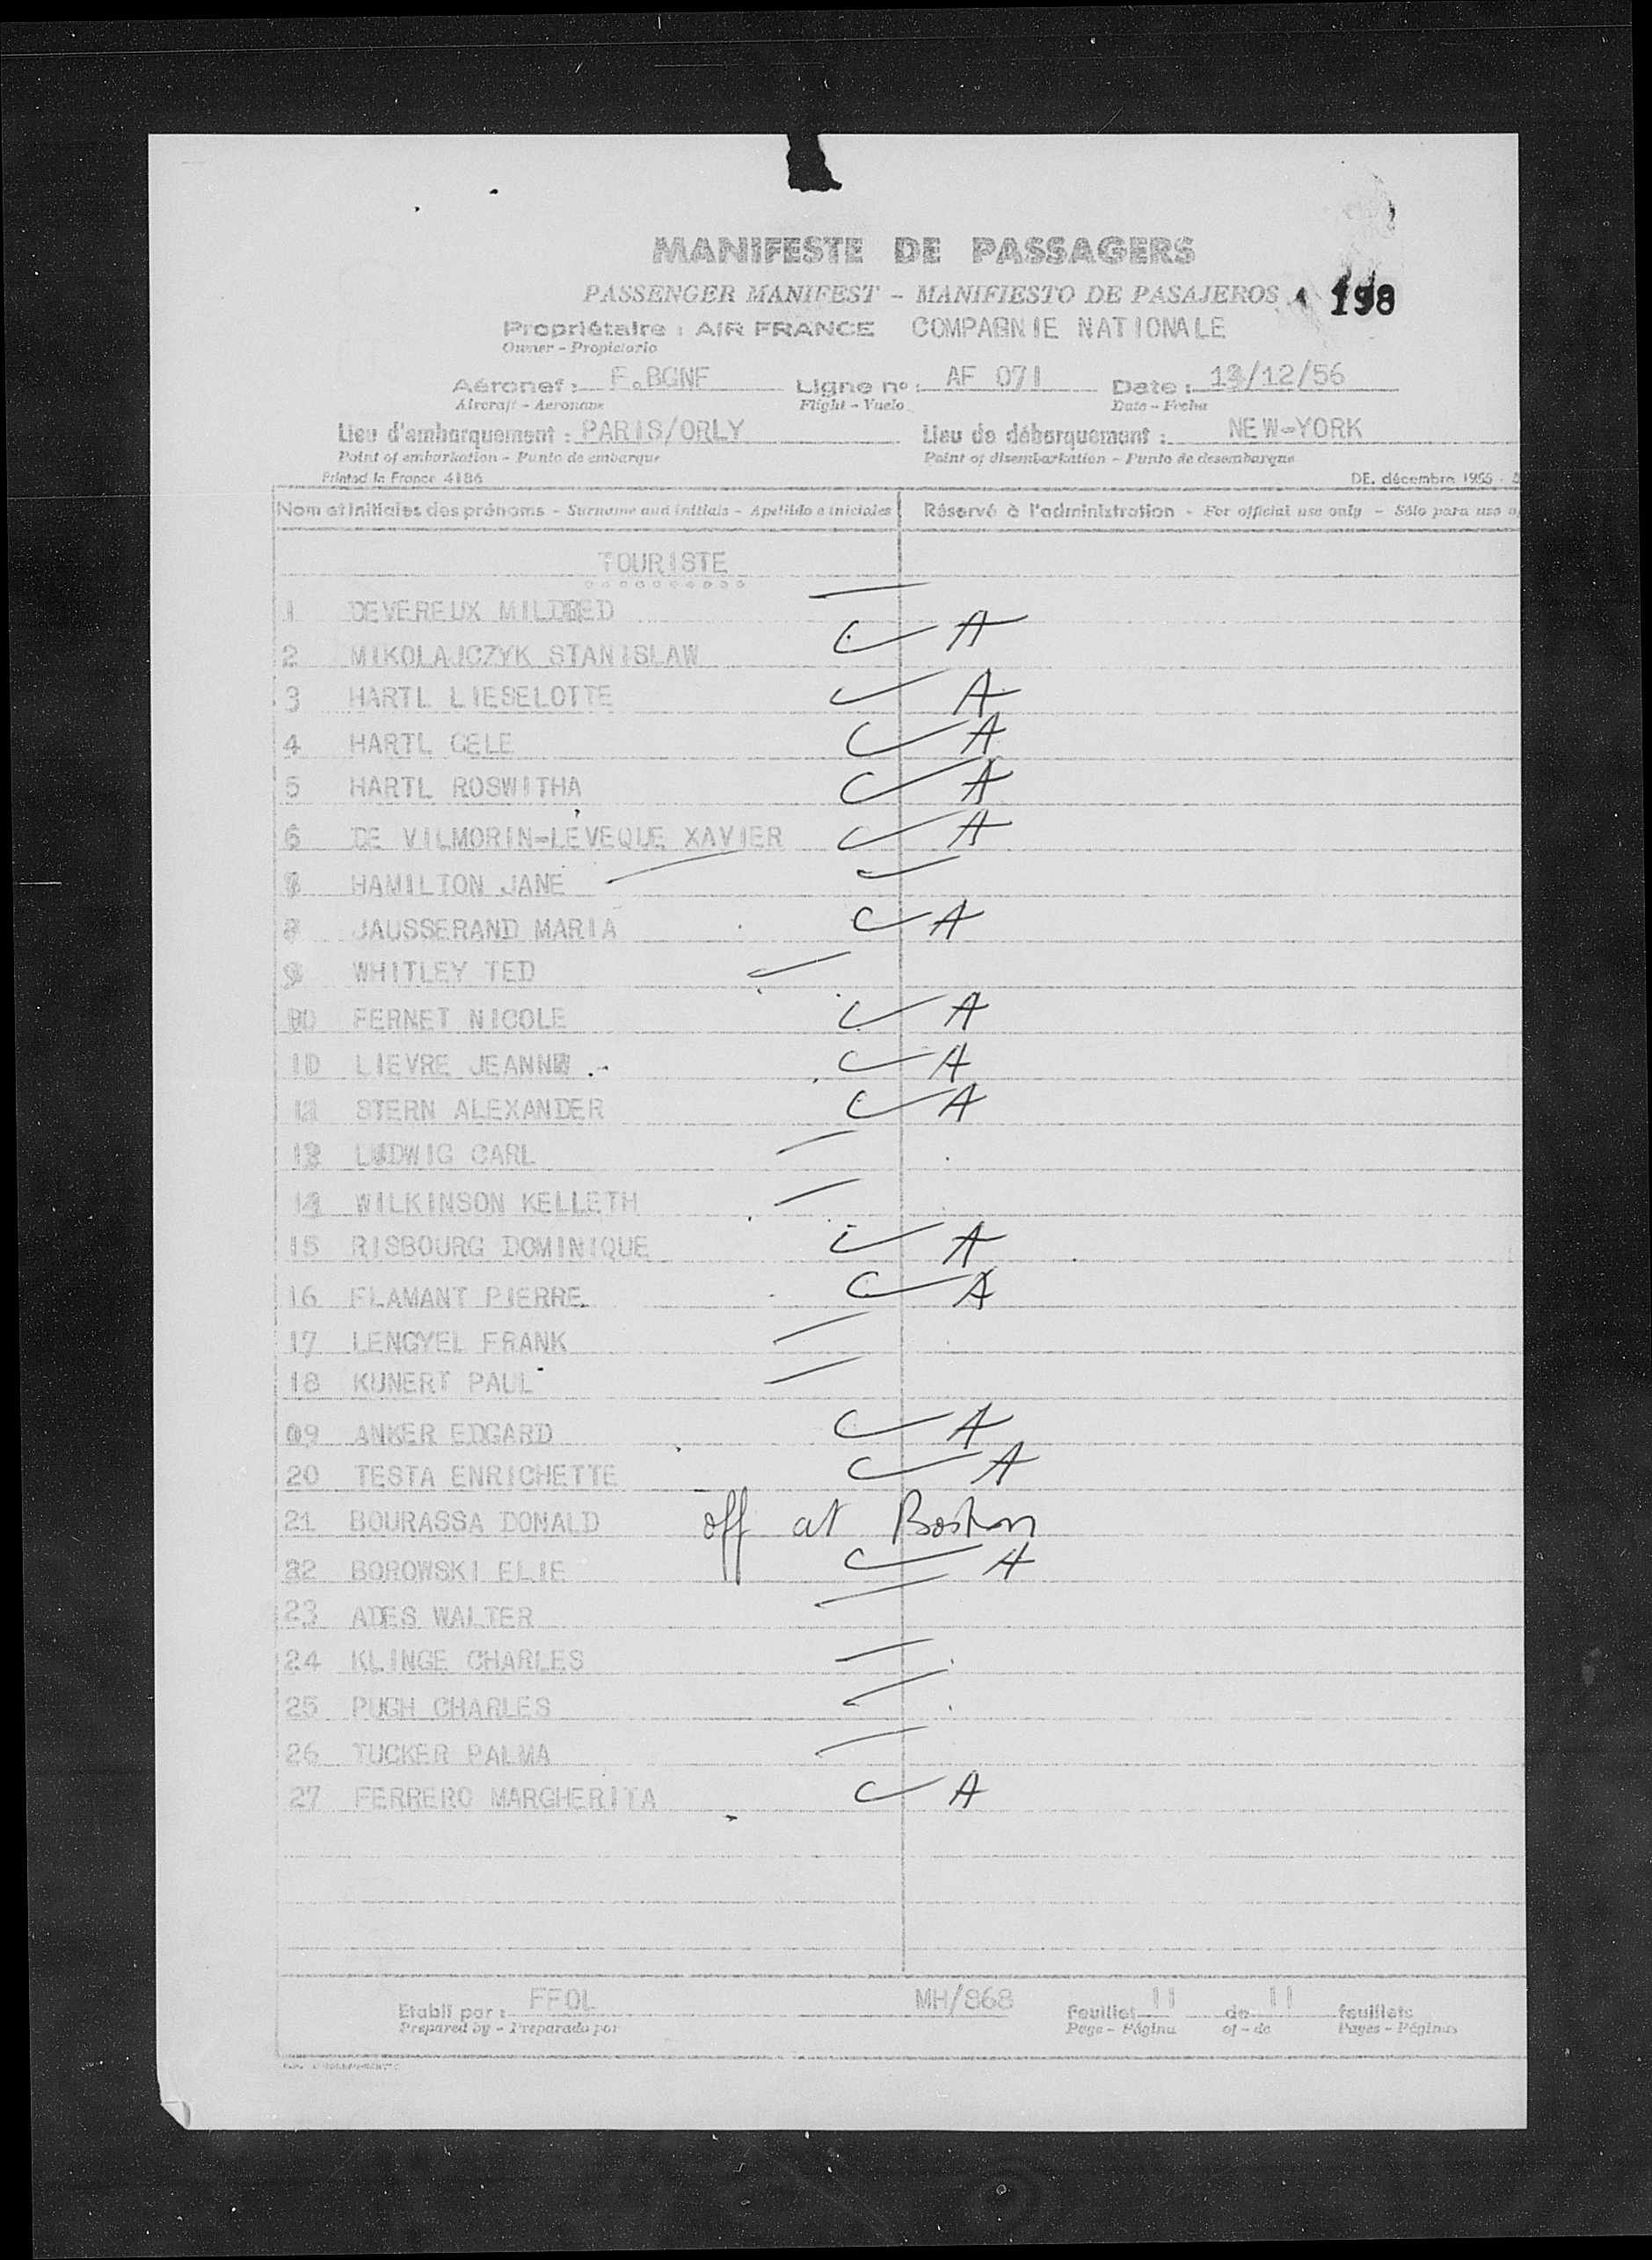 MANIFESTE DE PASSAGERS
PASSENGER MANIFEST - MANIFIESTO DE PASAJEROS 198
Propriétaire : AIR FRANCE COMPAGNIE NATIONALE
Owner - Propietario
Aéronef : F.BGNF Ligne nº : AF 071 Date : 13/12/56
Aircraft - Aeronave Flight - Vuelo Date - Fecha
Lieu d'embarquement : PARIS/ORLY Lieu de débarquement : NEW-YORK
Point of embarkation - Punto de embarque Point of disembarkation - Punto de desembarque
Printed in France 4186 DE. décembre 1955 -
Nom et initiales des prénoms - Surname and initials - Apellido e iniciales Réservé à l'administration - For official use only - Sólo para uso
TOURISTE
1 DEVEREUX MILDRED
2 MIKOLAJCZYK STANISLAW A
3 HARTL LIESELOTTE A
4 HARTL CELE A
5 HARTL ROSWITHA A
6 DE VILMORIN-LEVEQUE XAVIER A
7 HAMILTON JANE
8 JAUSSERAND MARIA A
9 WHITLEY TED
10 FERNET NICOLE A
LIEVRE JEANNE A
STERN ALEXANDER A
13 LUDWIG CARL
14 WILKINSON KELLETH
15 RISBOURG DOMINIQUE A
16 FLAMANT PIERRE A
17 LENGYEL FRANK
18 KUNERT PAUL
19 ANKER EDGARD A
20 TESTA ENRICHETTE A
21 BOURASSA DONALD off at Boston
22 BOROWSKI ELIE A
23 ADES WALTER
24 KLINGE CHARLES
25 PUGH CHARLES
26 TUCKER PALMA
27 FERRERO MARGHERITA A
Etabli par : FFOL MH/868 Feuillet 11 de 11 feuillets
Prepared by - Preparado por Page - Página of - de Pages - Páginas